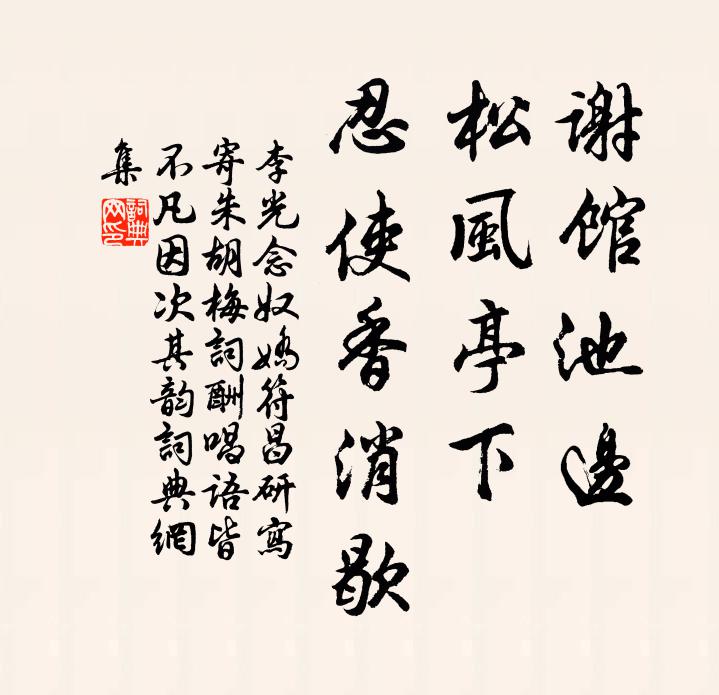 謝馆池邊
松風亭下
忍使香消歇
李光念奴嬌符昌研寫
寄朱胡梅詞酬唱語皆
不凡因次其韵詞典網
集
詞典
网印